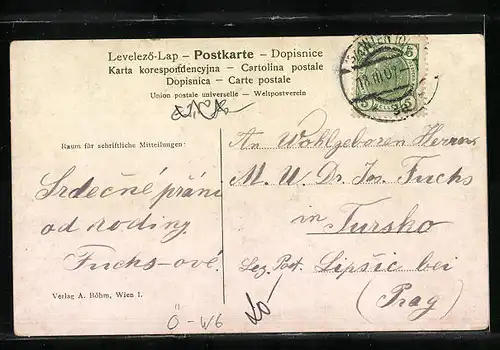 Levelező-Lap – Postkarte – Dopisnice
Karta korespondencyjna – Cartolina postale
Dopisnica – Carte postale
Union postale universelle – Weltpostverein
5 5
5 HELLER 5
Raum für schriftliche Mitteilungen:
Srdečné přání
od rodiny
Fuchs-ové.
An Wohlgeboren Herrn
M. U. Dr. Jos. Fuchs
in
Tursko
Lez. Post. Lipšic bei
(Prag)
Verlag A. Böhm, Wien I.
Ö-W6